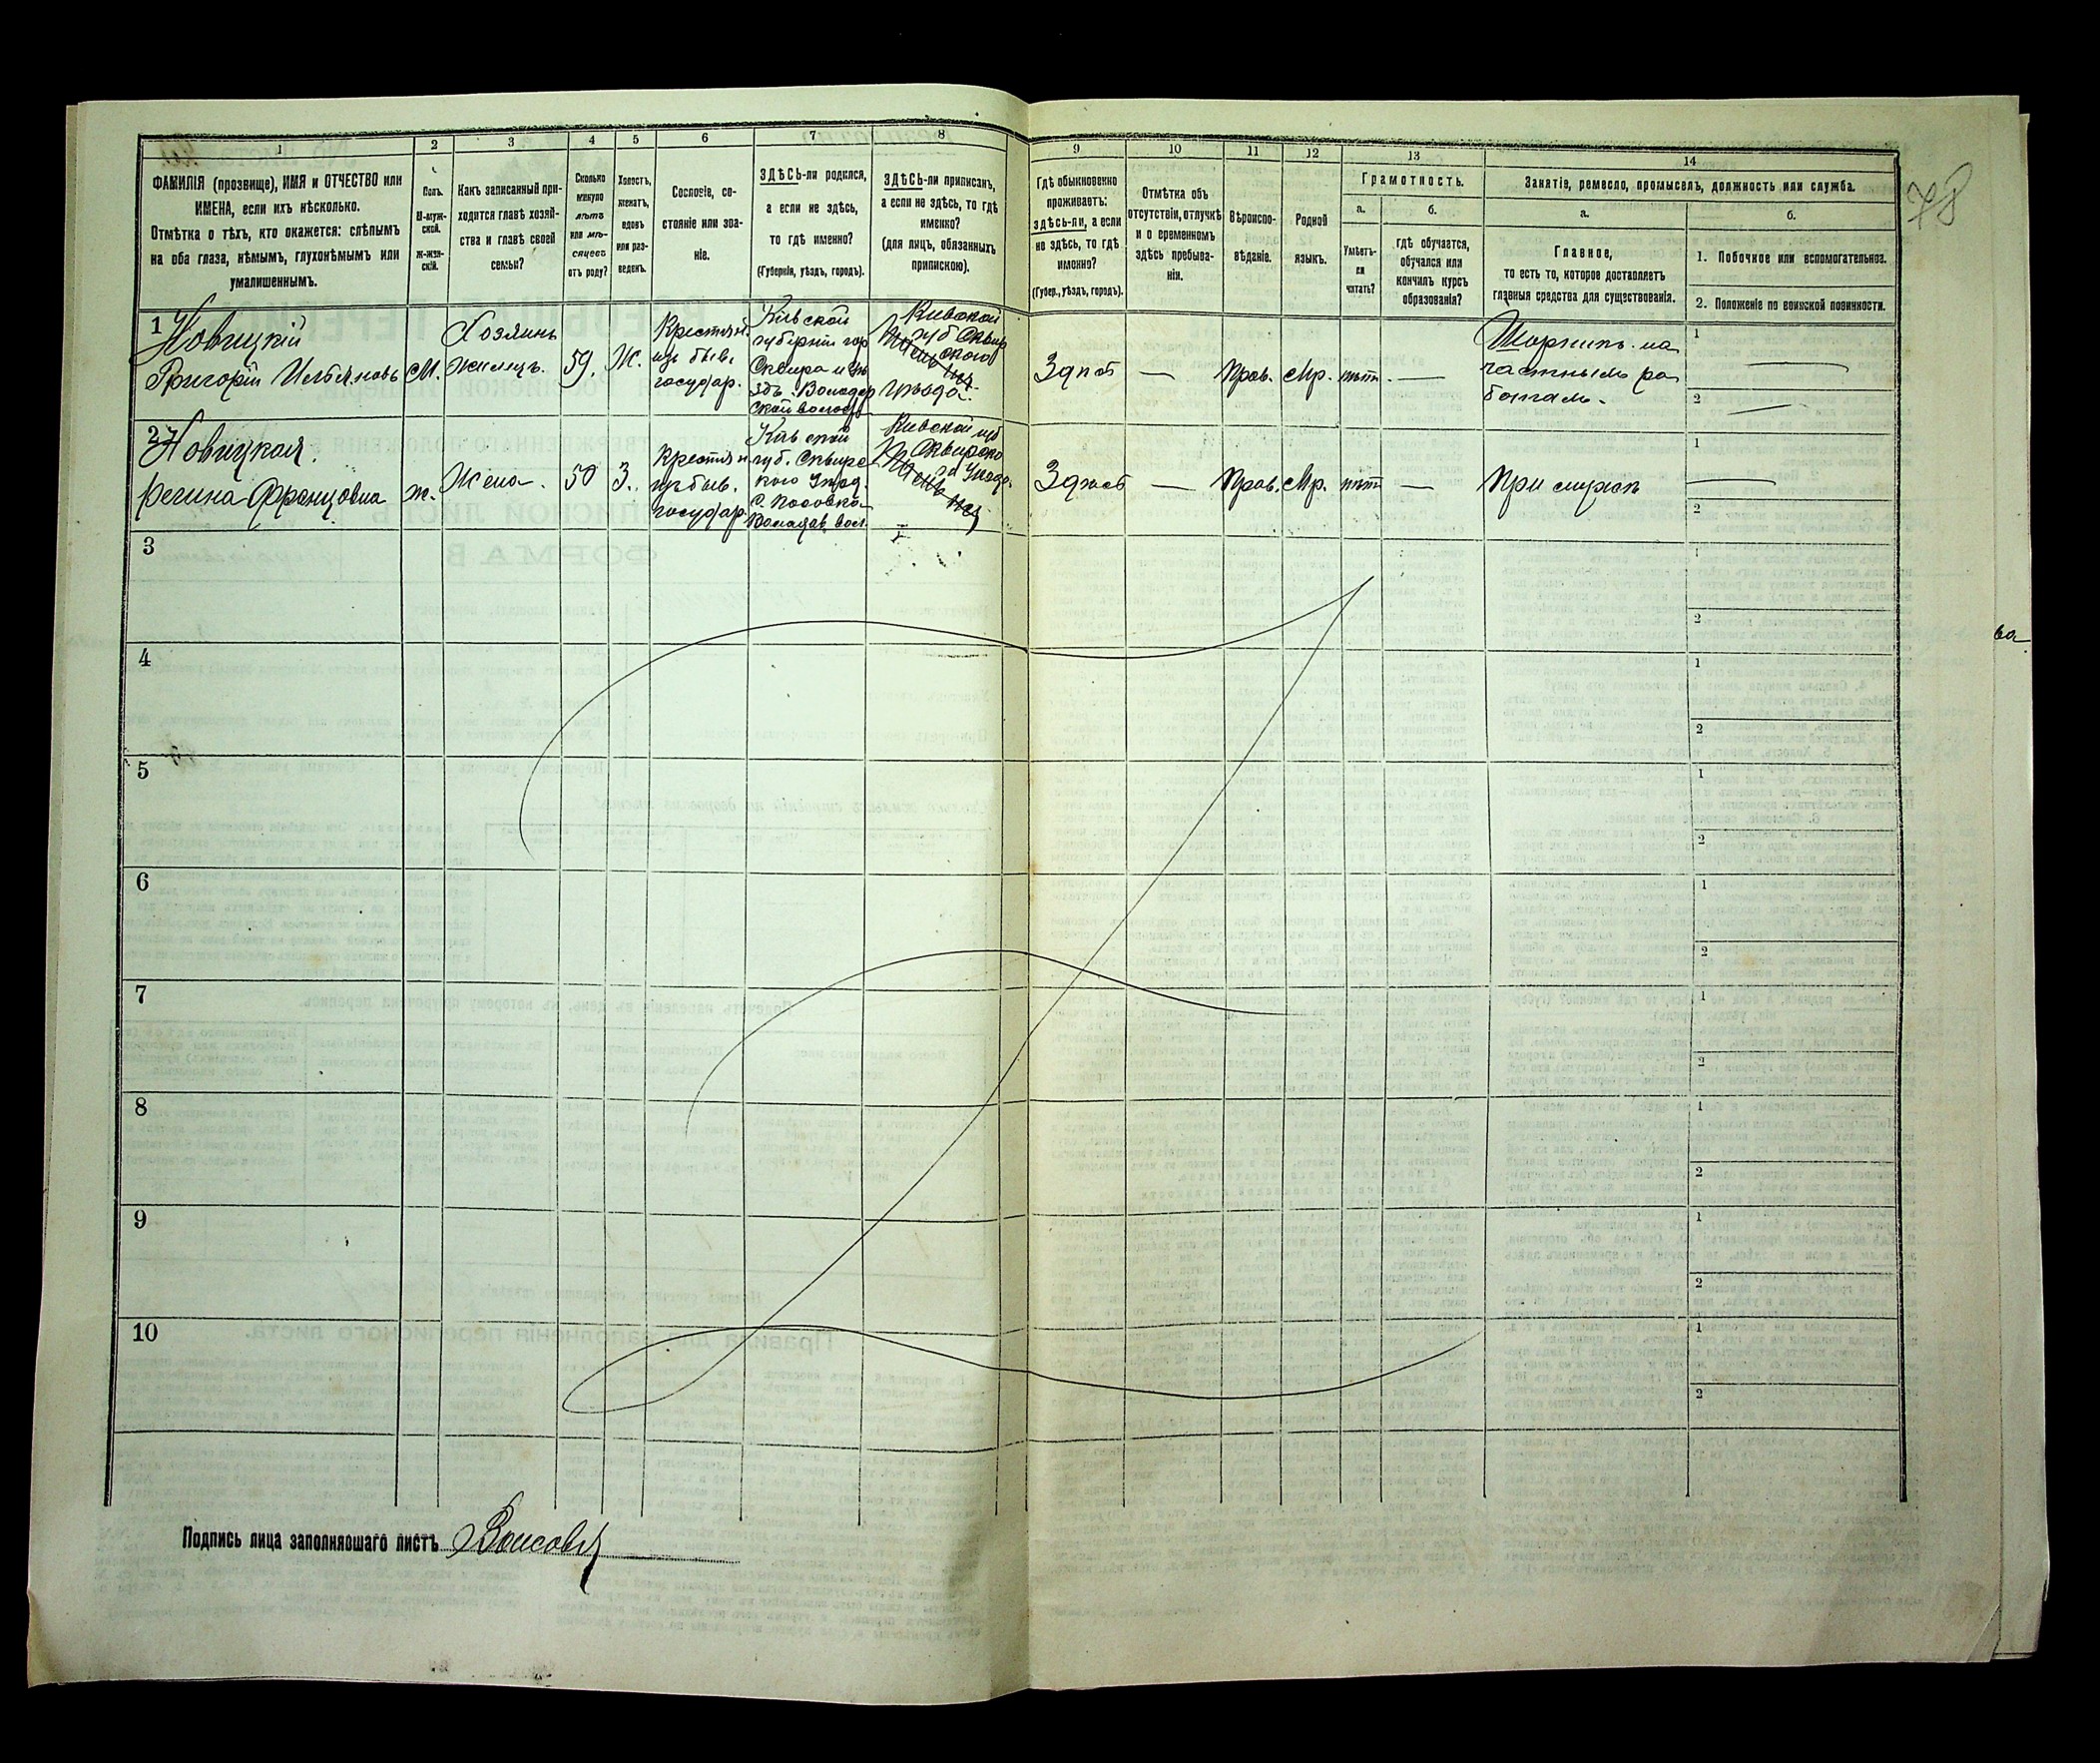 1
2
3
4
5
6
7
8
9
10
11
12
13
14
ФАМИЛІЯ (прозвище), ИМЯ и ОТЧЕСТВО или
ИМЕНА, если ихъ нѣсколько.
Отмѣтка о тѣхъ, кто окажется: слѣпымъ
на оба глаза, нѣмымъ, глухонѣмымъ или
умалишеннымъ.
Полъ.
М-муж-
ской.
Ж-жен-
скій.
Какъ записанный при-
ходится главѣ хозяй-
ства и главѣ своей
семьи?
Сколько
минуло
лѣтъ
или мѣ-
сяцевъ
отъ роду?
Холостъ,
женатъ,
вдовъ
или раз-
веденъ.
Сословіе, со-
стояніе или зва-
ніе.
ЗДѢСЬ-ли родился,
а если не здѣсь,
то гдѣ именно?
(Губернія, уѣздъ, городъ).
ЗДѢСЬ-ли приписанъ,
а если не здѣсь, то гдѣ
именно?
(для лицъ, обязанныхъ
припискою).
Гдѣ обыкновенно
проживаетъ:
здѣсь-ли, а если
не здѣсь, то гдѣ
именно?
(Губер., уѣздъ, городъ).
Отмѣтка объ
отсутствіи, отлучкѣ
и о временномъ
здѣсь пребыва-
ніи.
Вѣроиспо-
вѣданіе.
Родной
языкъ.
Грамотность.
а.
Умѣетъ-
ли
читать?
б.
гдѣ обучается,
обучался или
кончилъ курсъ
образованія?
Занятіе, ремесло, промыселъ, должность или служба.
а.
Главное,
то есть то, которое доставляетъ
главныя средства для существованія.
б.
1. Побочное или вспомогательное.
2. Положеніе по воинской повинности.
78
1 Новицкій
Григорій
М.
Хозяинъ
Жилецъ.
59.
Ж.
Крестян.
изъ быв.
государ.
Кіевской
губерніи гор
Сквира и уѣ
здъ. Володар
ской волост
Кіевской
губ Сквир
скаго
уѣзда.
Здѣсь
—
Прав.
Мр.
нѣтъ.
—
Шорникъ. на
частныхъ ра
ботахъ.
1
—
2
—
2 Новицкая.
Регина Францовна
ж.
Жена.
50
З.
Крестян
изъ быв.
государ.
Кіевской
губ. Сквирс
каго Уѣзд.
с. Косовка
Володар. вол.
Кіевской губ
Сквирска
го Уѣзда.
Здѣсь
—
Прав.
Мр.
нѣтъ
—
При мужѣ
1
—
2
3
1
2
4
1
2
5
1
2
6
1
2
7
1
2
8
1
2
9
1
2
10
1
2
ва
Подпись лица заполнявшаго листъ